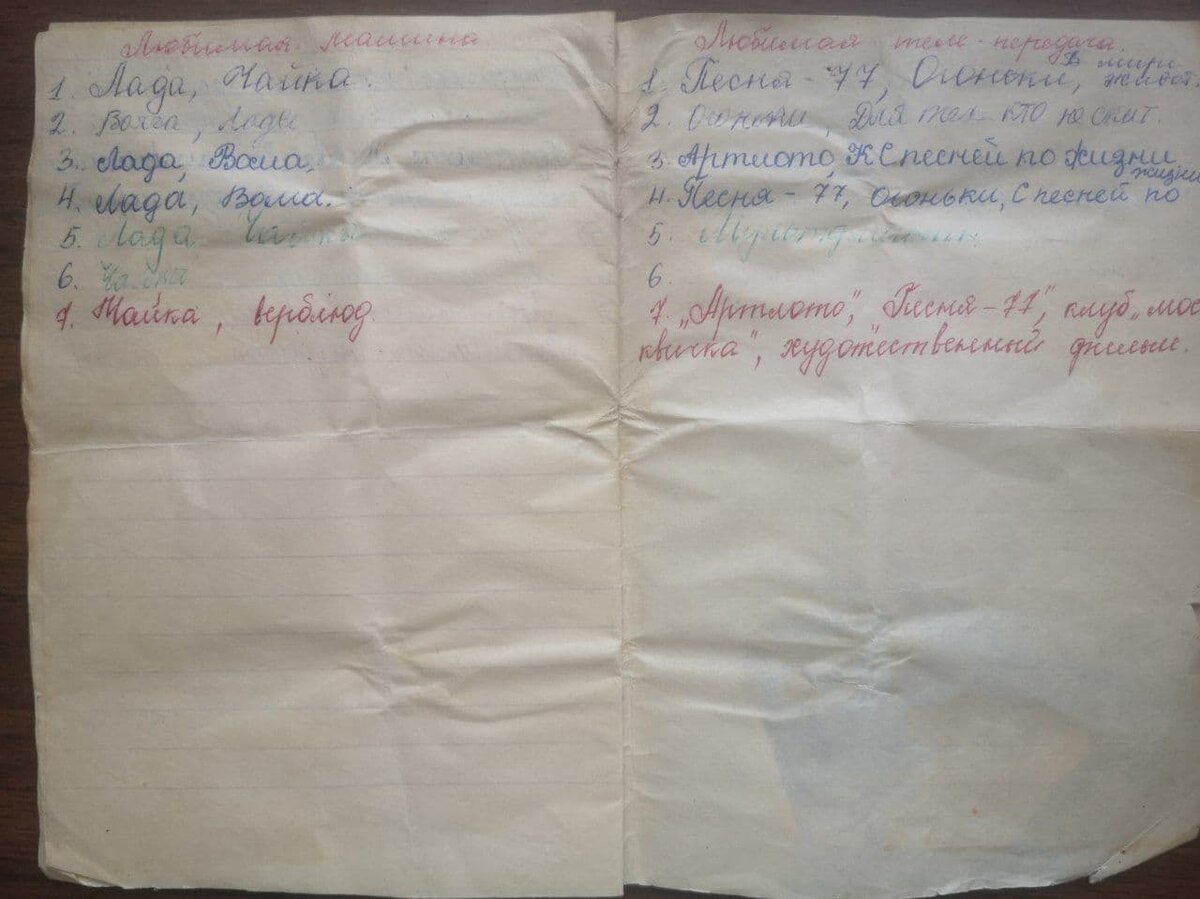 Любимая машина
1. Лада, Чайка.
2. Волга, Лады
3. Лада, Волга.
4. Лада, Волга.
5. Лада, Чайка
6. Чайка
7. Чайка, верблюд.
Любимая теле-передача.
1. Песня - 77, Огоньки, В мире живот.
2. Огоньки, Для тех кто не спит.
3. Артлото, К С песней по жизни
4. Песня - 77, Огоньки, С песней по жизни
5. Мультфильмы
6.
7. „Артлото", „Песня-77", клуб „мос
квичка", художественный фильм.